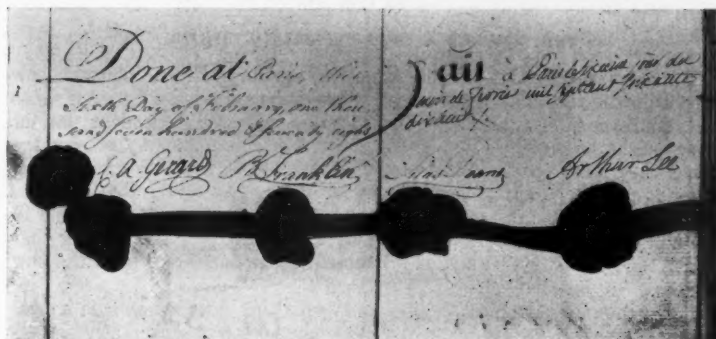 Done at Paris, this
Sixth Day of February, one thou
sand seven hundred & seventy eight
Fait à Paris le sixieme jour du
mois de fevrier mil sept cent soixante
dix huit
C. A. Gerard B Franklin Silas Deane Arthur Lee